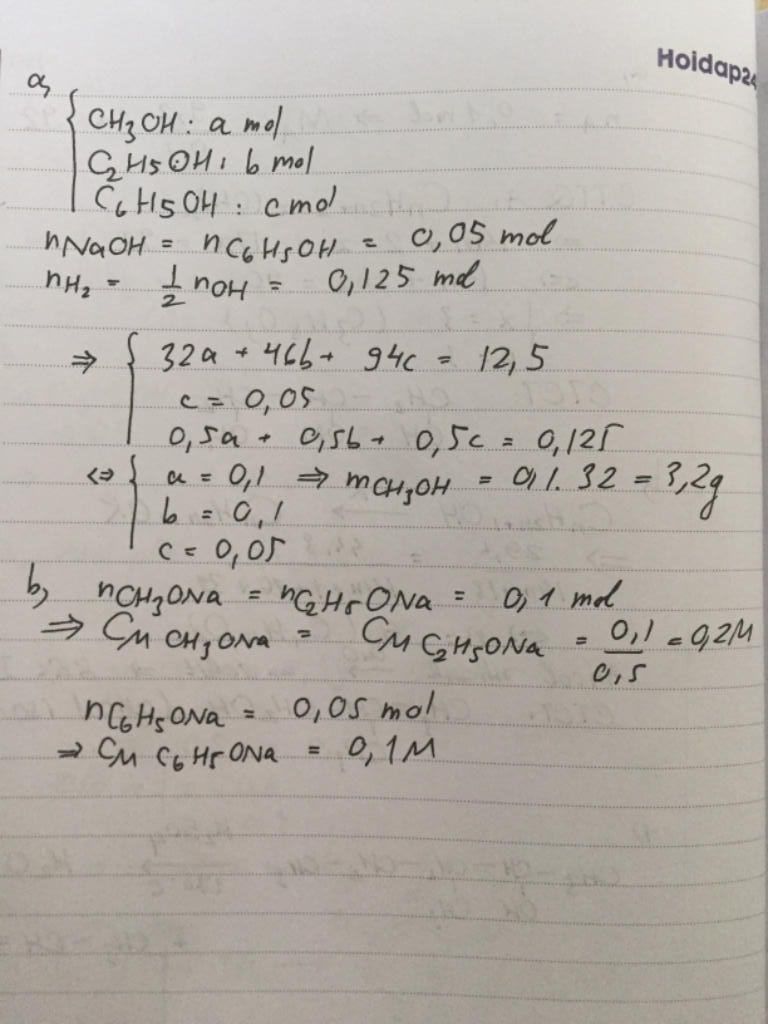 Hoidap24
a,
CH3OH: a mol
C2H5OH: b mol
C6H5OH: c mol
nNaOH = nC6H5OH = 0,05 mol
nH2 = 1/2 nOH = 0,125 mol
⇒ { 32a + 46b + 94c = 12,5
c = 0,05
0,5a + 0,5b + 0,5c = 0,125
⇔ { a = 0,1 ⇒ mCH3OH = 0,1. 32 = 3,2g
b = 0,1
c = 0,05
b, nCH3ONa = nC2H5ONa = 0,1 mol
⇒ CM CH3ONa = CM C2H5ONa = 0,1/0,5 = 0,2M
nC6H5ONa = 0,05 mol
⇒ CM C6H5ONa = 0,1M